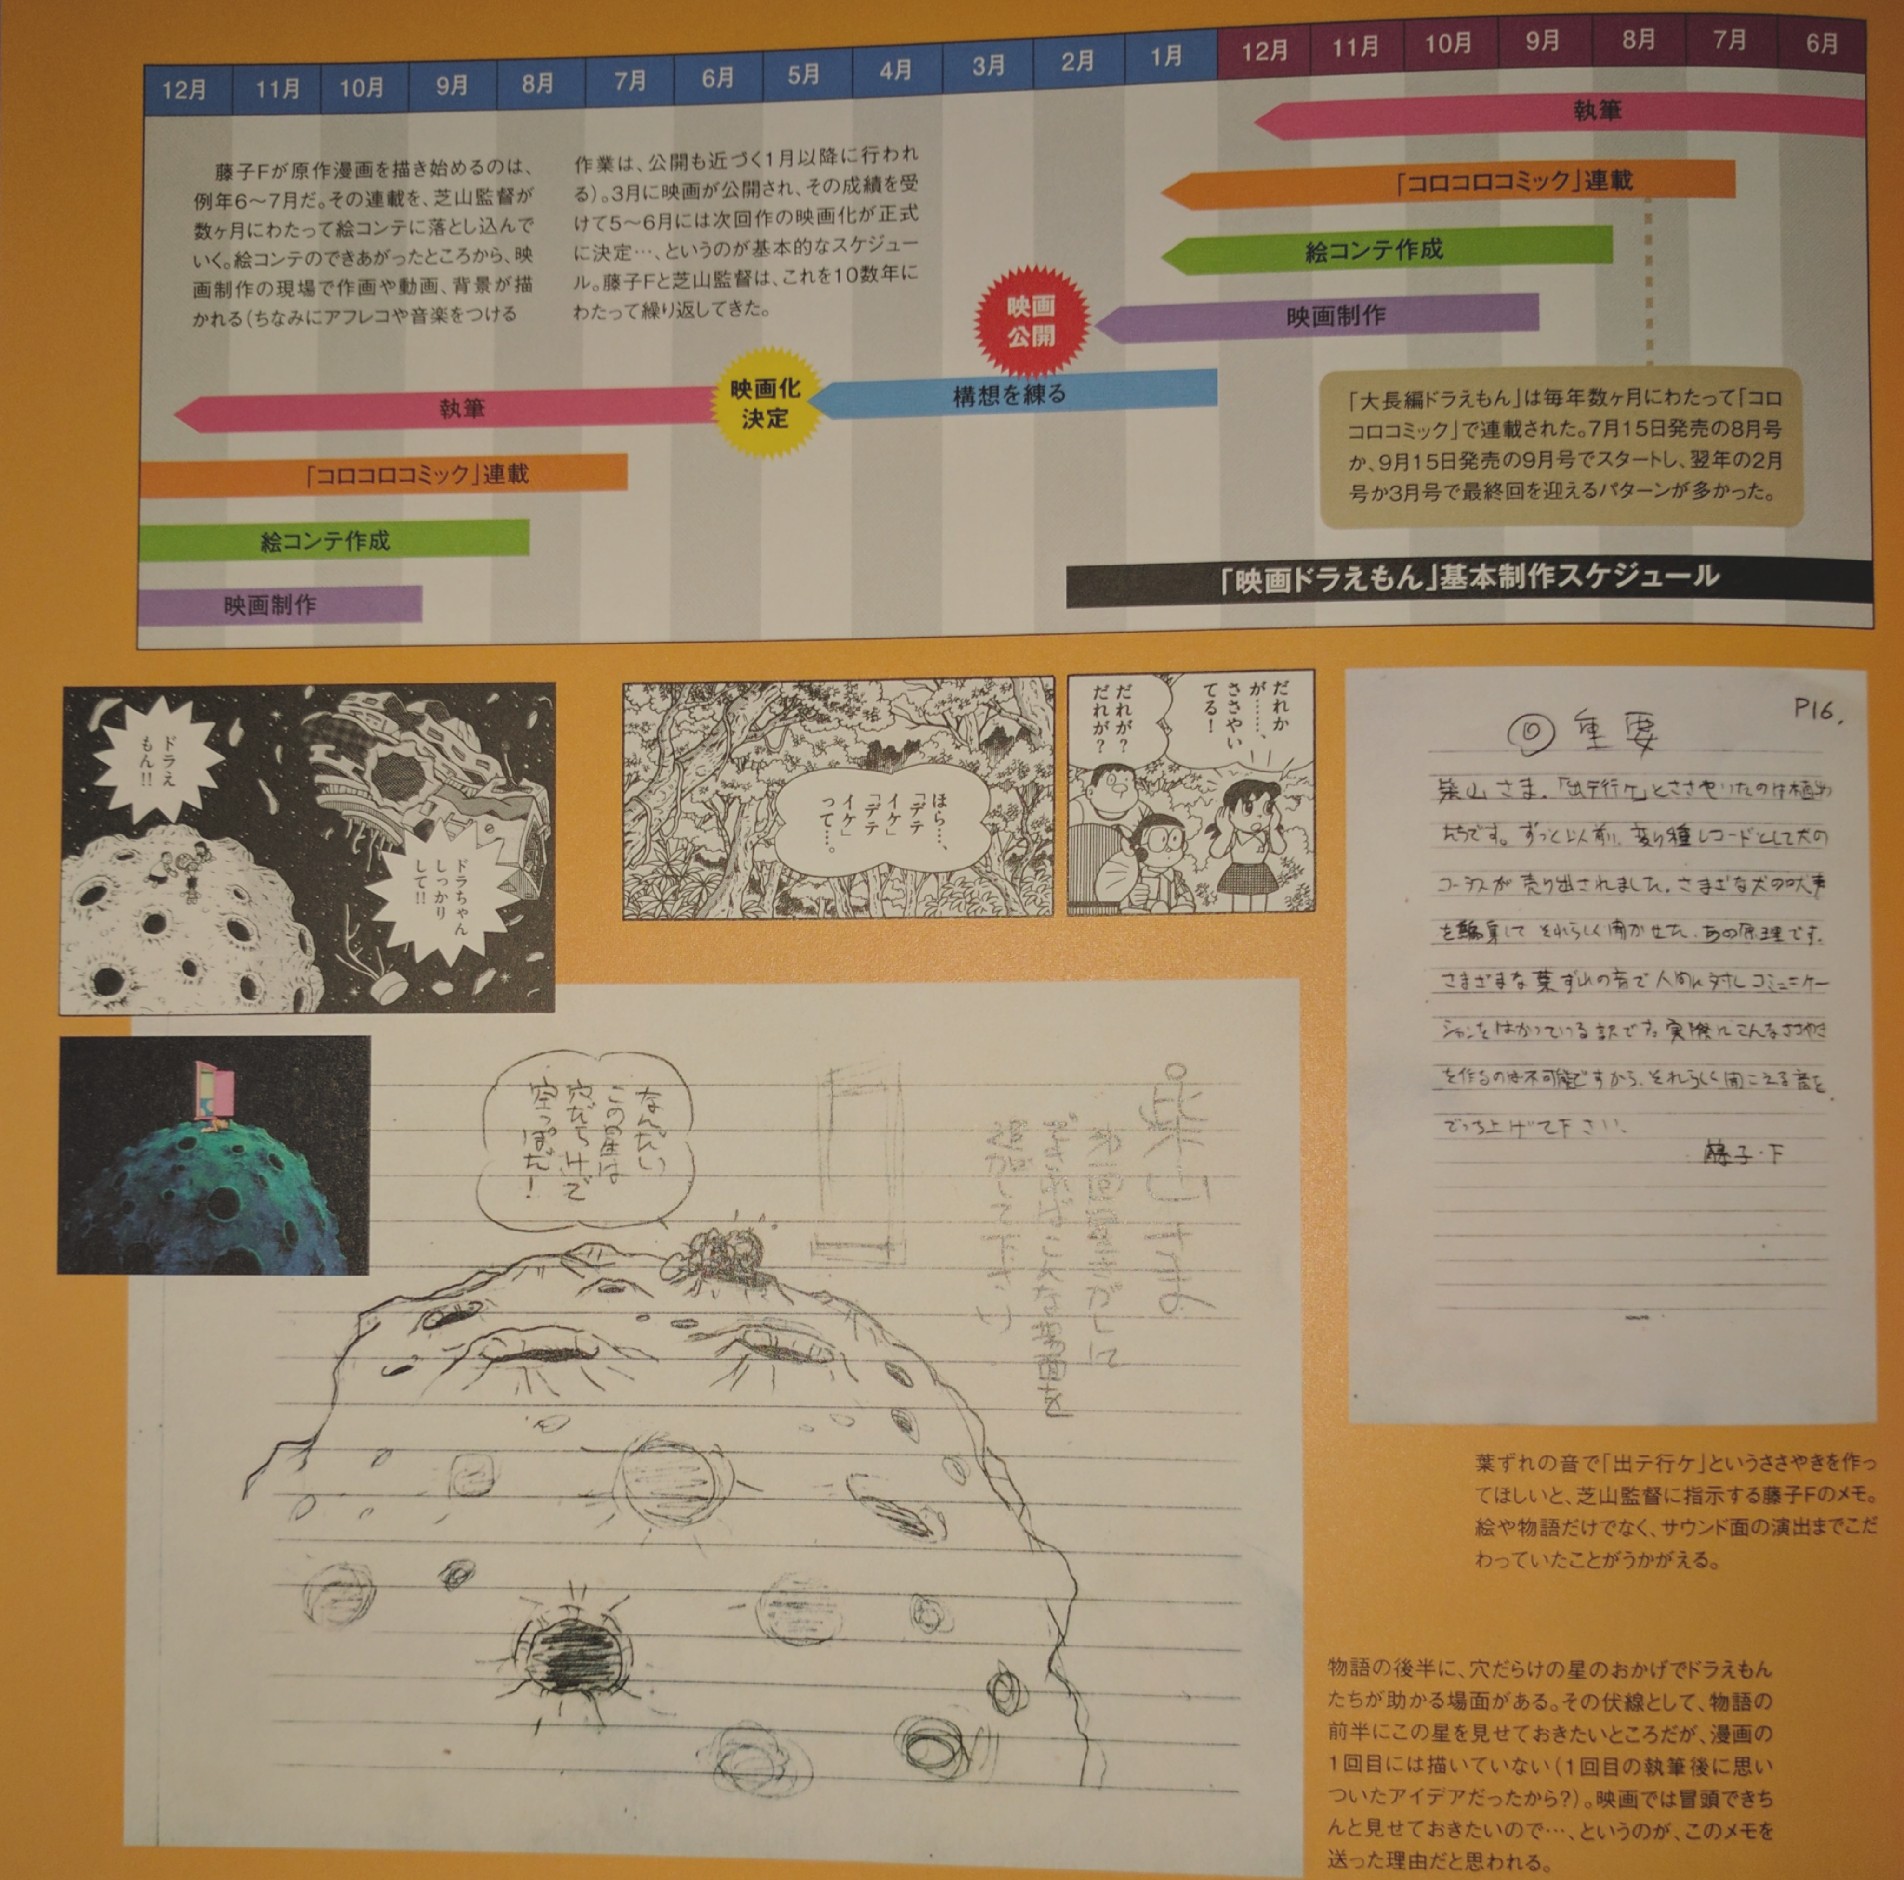 12月 11月 10月 9月 8月 7月 6月 5月 4月 3月 2月 1月 12月 11月 10月 9月 8月 7月 6月
執筆
「コロコロコミック」連載
絵コンテ作成
映画制作
映画
公開
構想を練る
映画化
決定
執筆
「コロコロコミック」連載
絵コンテ作成
映画制作
藤子Fが原作漫画を描き始めるのは、
例年6〜7月だ。その連載を、芝山監督が
数ヶ月にわたって絵コンテに落とし込んで
いく。絵コンテのできあがったところから、映
画制作の現場で作画や動画、背景が描
かれる（ちなみにアフレコや音楽をつける
作業は、公開も近づく1月以降に行われ
る）。3月に映画が公開され、その成績を受
けて5〜6月には次回作の映画化が正式
に決定…、というのが基本的なスケジュー
ル。藤子Fと芝山監督は、これを10数年に
わたって繰り返してきた。
「大長編ドラえもん」は毎年数ヶ月にわたって「コロ
コロコミック」で連載された。7月15日発売の8月号
か、9月15日発売の9月号でスタートし、翌年の2月
号か3月号で最終回を迎えるパターンが多かった。
「映画ドラえもん」基本制作スケジュール
だれか
が………、
ささやい
てる！
だれが？
だれが？
ほら…、
「デテ
イケ」
「デテ
イケ」
って…。
ドラちゃん
しっかり
して!!
ドラえ
もん!!
P16.
◎重要
芝山さま。「出テ行ケ」とささやいたのは植物
たちです。ずっと以前、変り種レコードとして犬の
コーラスが売り出されました。さまざまな犬の吠声
を編集して それらしく聞かせた、あの原理です。
さまざまな葉ずれの音で人間に対しコミュニケー
ションをはかっている訳です。実際にこんなささやき
を作るのは不可能ですから、それらしく聞こえる音を
でっち上げて下さい。
藤子・F
芝山さま
や画さがしに
こんな場面を
追がして下さい
なんだい
この星は
穴だらけで
空っぽだ！
葉ずれの音で「出テ行ケ」というささやきを作っ
てほしいと、芝山監督に指示する藤子Fのメモ。
絵や物語だけでなく、サウンド面の演出までこだ
わっていたことがうかがえる。
物語の後半に、穴だらけの星のおかげでドラえもん
たちが助かる場面がある。その伏線として、物語の
前半にこの星を見せておきたいところだが、漫画の
1回目には描いていない（1回目の執筆後に思い
ついたアイデアだったから?）。映画では冒頭できち
んと見せておきたいので…、というのが、このメモを
送った理由だと思われる。